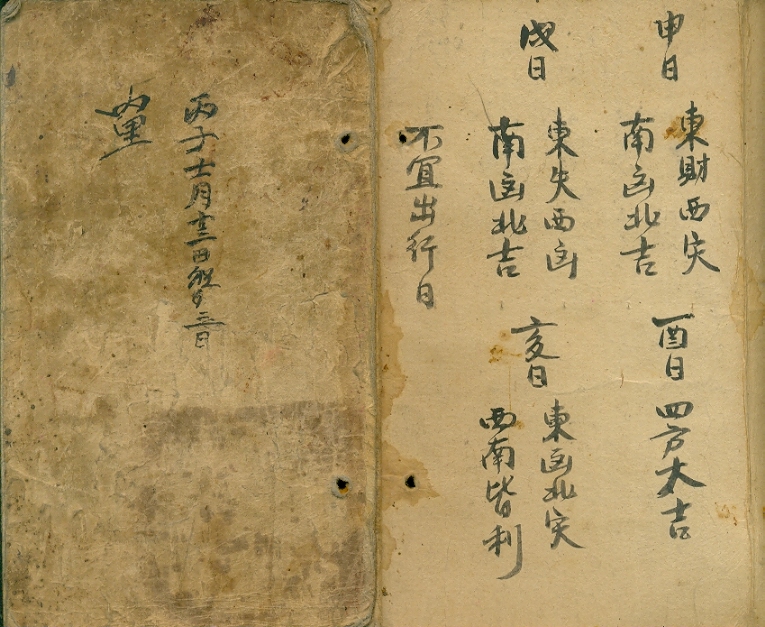 申日
東財西失
南凶北吉
酉日
四方大吉
戌日
東失西凶
南凶北吉
亥日
東凶北失
西南皆利
不宜出行日
丙子十一月
日
三日